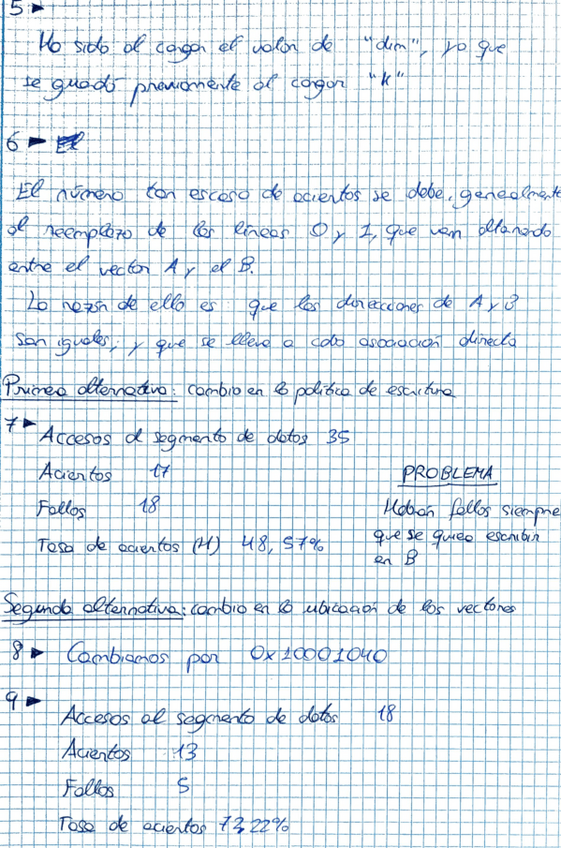 5 ►
Ha sido al cargar el valor de "dim", ya que
se guadó previamente al cargar "k"
6 ►
El número tan escaso de aciertos se debe, genealmente
al reemplazo de las líneas 0 y 1, que van altenando
entre el vector A y el B.
La razón de ello es que las direcciones de A y B
son iguales, y que se lleva a cabo asociación directa
Primea alternativa: cambio en la política de escritura
7 ►
Accesos al segmento de datos 35
Aciertos 17
Fallos 18
Tasa de aciertos (H) 48,57%
PROBLEMA
Habrán fallos siempre
que se quiea escribir
en B
Segunda alternativa: cambio en la ubicación de los vectores
8 ► Cambiamos por 0x10001040
9 ►
Accesos al segmento de datos 18
Aciertos 13
Fallos 5
Tasa de aciertos 72,22%